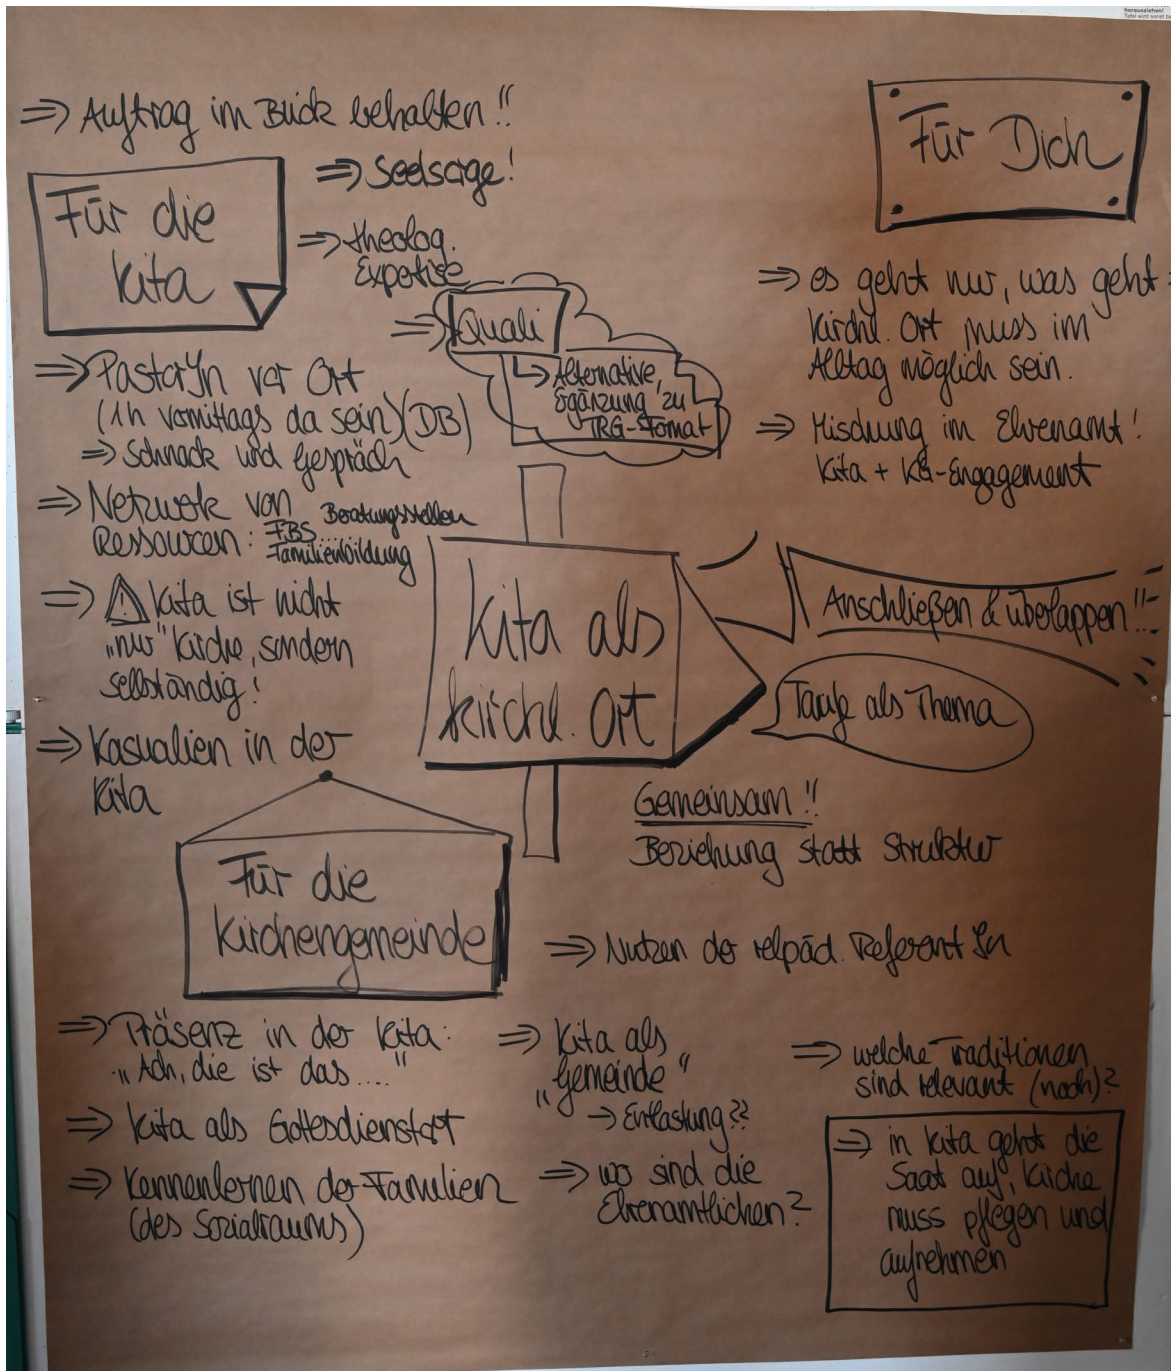 herausziehen!
⇒ Auftrag im Blick behalten!!
Für die
Kita
⇒ Seelsorge!
⇒ theolog.
Expertise
⇒ Quali
↳ Alternative,
Ergänzung zu
TRG-Format
⇒ PastorIn vor Ort
(1h vormittags da sein) (DB)
⇒ Schnack und Gespräch
⇒ Netzwerk von
Ressourcen: FBS Beratungsstellen
Familienbildung
⇒ ⚠ Kita ist nicht
„nur“ Kirche, sondern
selbständig!
⇒ Kasualien in der
Kita
Für Dich
⇒ es geht nur, was geht:
Kirchl. Ort muss im
Alltag möglich sein.
⇒ Mischung im Ehrenamt!
Kita + KG-Engagement
Kita als
kirchl. Ort
Anschließen & überlappen!!
Taufe als Thema
Gemeinsam!!
Beziehung statt Struktur
Für die
Kirchengemeinde
⇒ Nutzen der relpäd. ReferentIn
⇒ Präsenz in der Kita:
„Ach, die ist das....“
⇒ Kita als Gottesdienstort
⇒ Kennenlernen der Familien
(des Sozialraums)
⇒ Kita als
„Gemeinde“
→ Entlastung??
⇒ wo sind die
Ehrenamtlichen?
⇒ welche Traditionen
sind relevant (noch)?
⇒ in Kita geht die
Saat auf, Kirche
muss pflegen und
aufnehmen